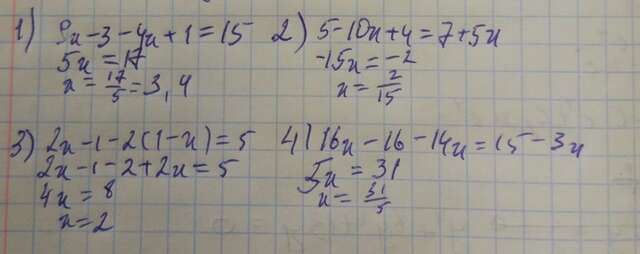 1) 9x-3-4x+1=15
5x=17
x=17/5=3,4
2) 5-10x+4=7+5x
-15x=-2
x=2/15
3) 2x-1-2(1-x)=5
2x-1-2+2x=5
4x=8
x=2
4) 16x-16-14x=15-3x
5x=31
x=31/5